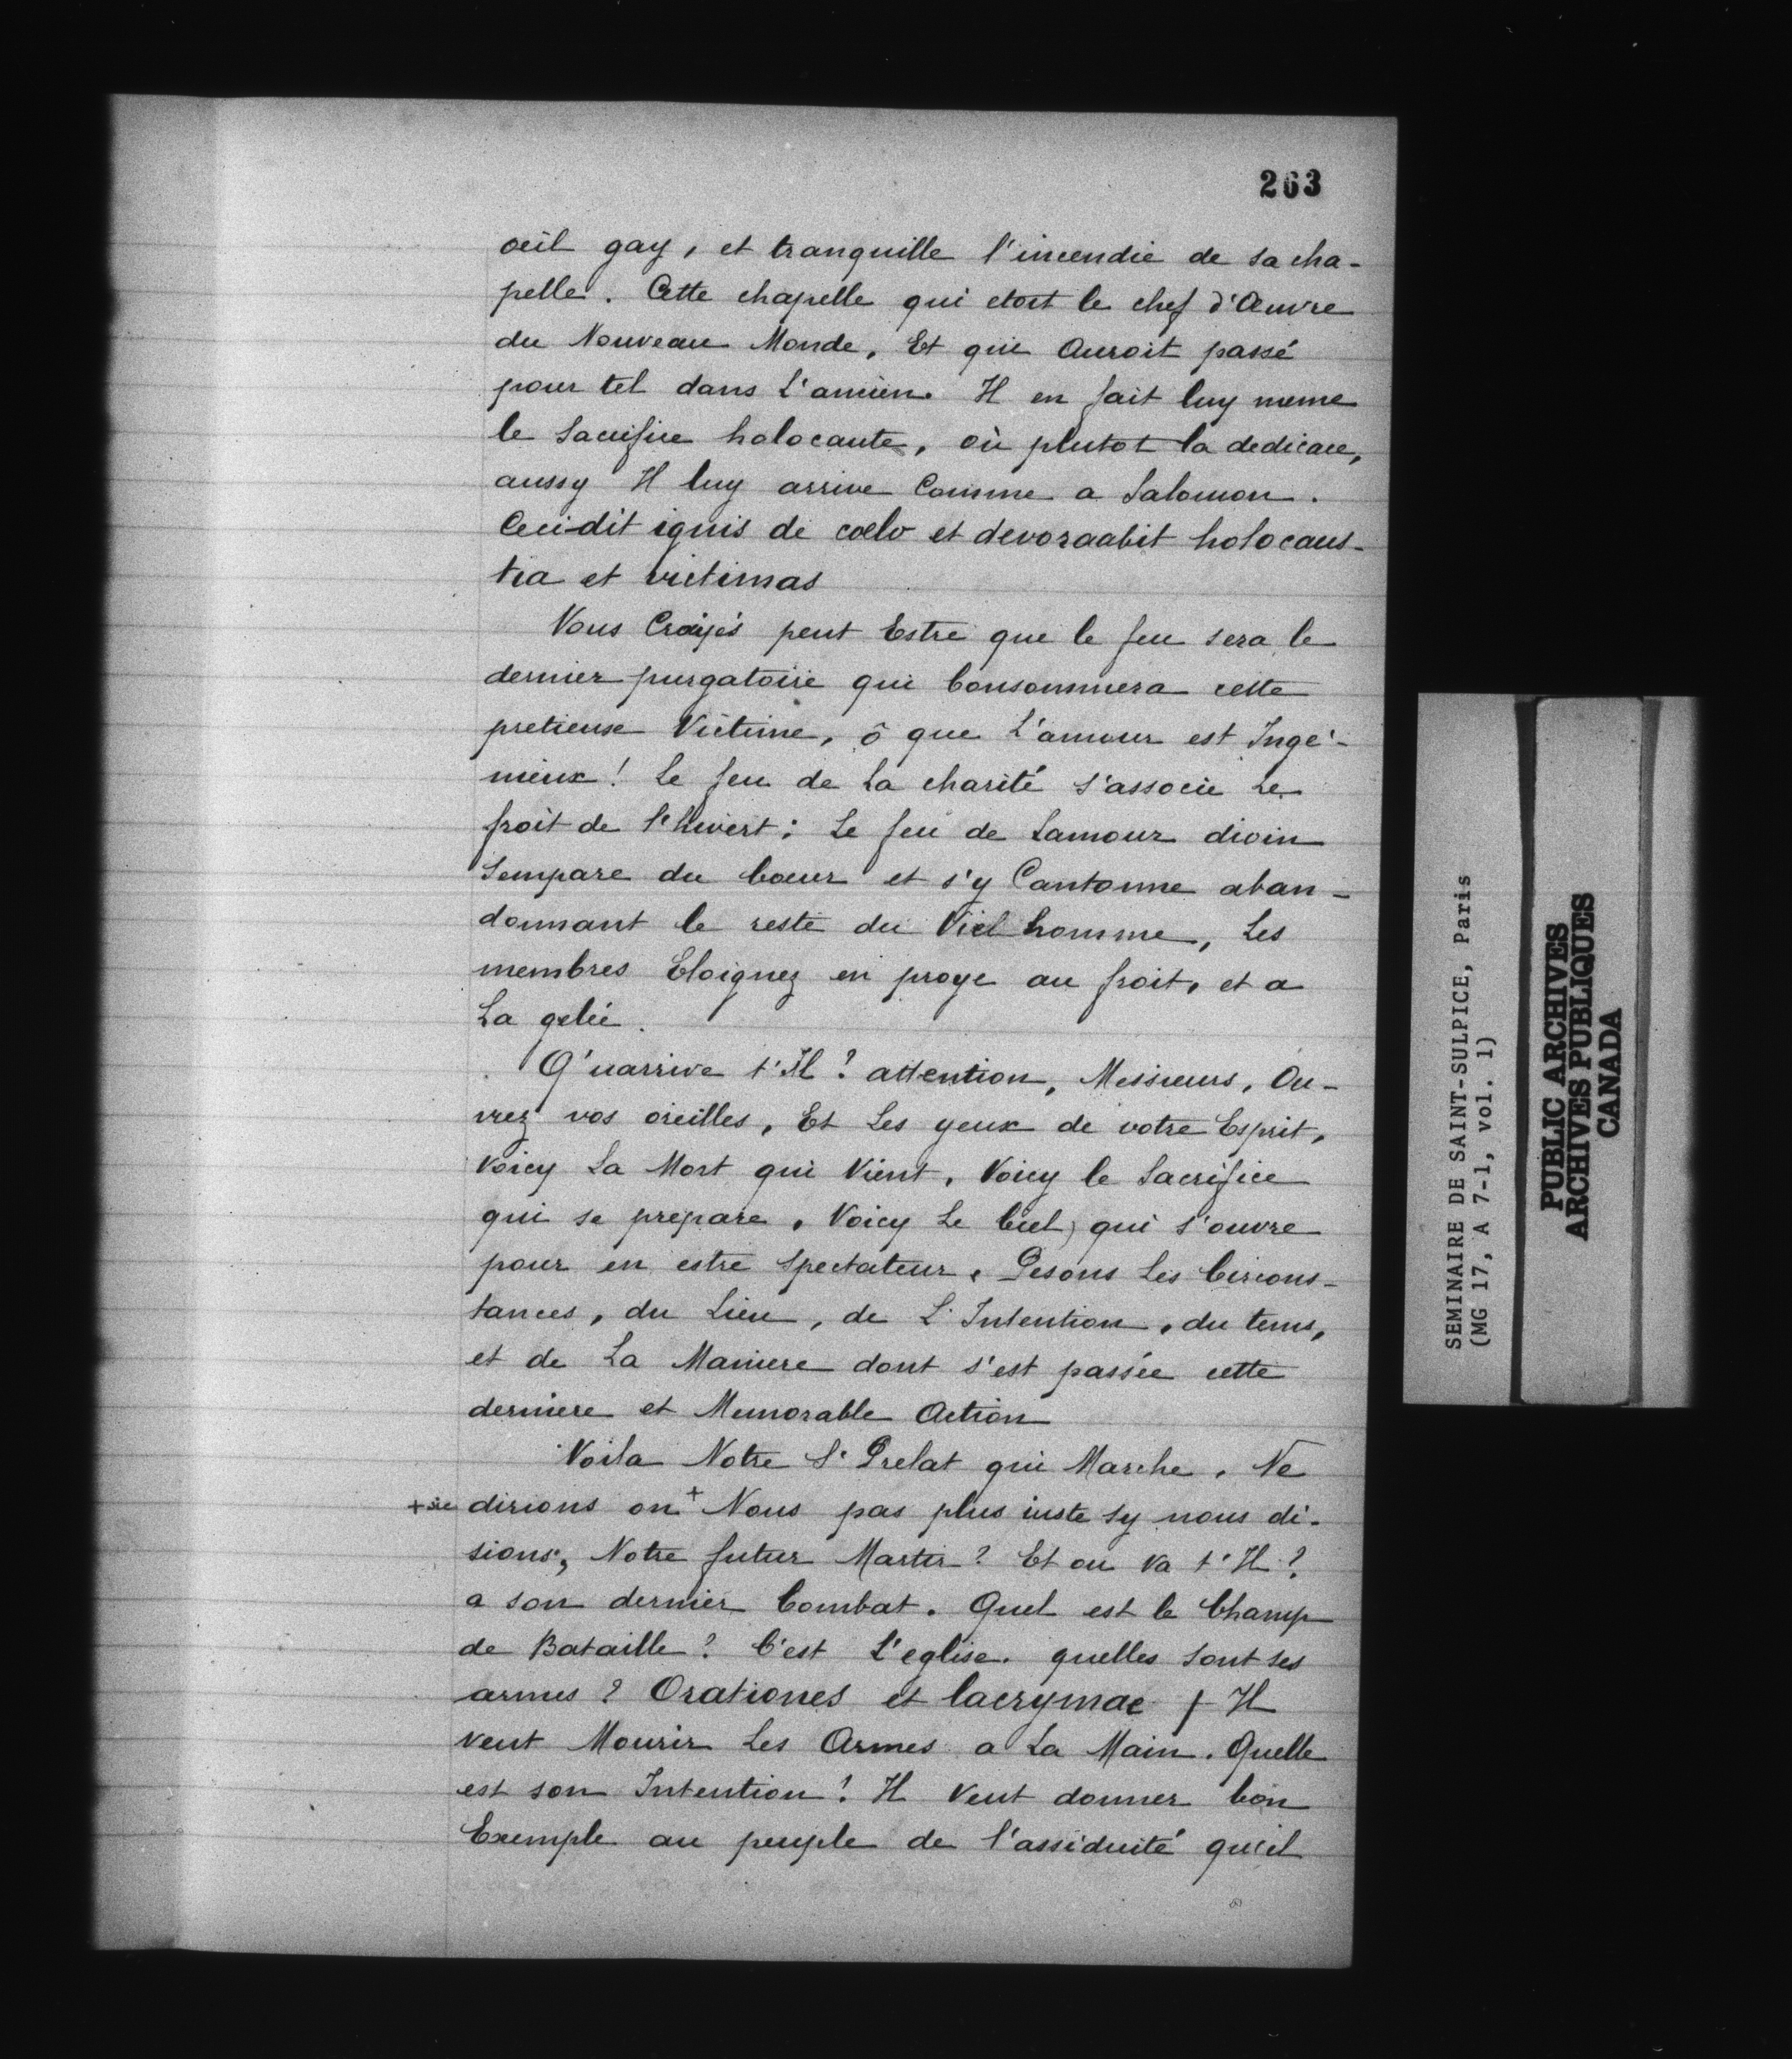 263
oeil gay, et tranquille l'incendie de sa cha-
pelle. Cette chapelle qui etoit le chef d'Œuvre
du Nouveau Monde, Et qui Auroit passé
pour tel dans L'ancien. Il en fait luy meme
le Sacrifice holocauste, où plutot la dedicace,
aussy Il luy arrive Comme a Salomon.
Cecidit ignis de coelo et devoraabit holocaus-
tia et victimas
Vous Croiyés peut Estre que le feu sera le
dernier purgatoire qui Consommera cette
pretieuse Victime, ô que L'amour est Ingé-
nieux! Le feu de La charité s'associe Le
froit de l'hivert; Le feu de Lamour divin
Sempare du Coeur et s'y Cantonne aban-
donnant le reste du Viel homme, Les
membres Eloignez en proye au froit, et a
La gelée.
Q'uarrive t'Il? attention, Messieurs, Ou-
vrez vos oreilles, Et Les yeux de votre Esprit,
Voicy La Mort qui Vient, Voicy le Sacrifice
qui se prepare, Voicy Le Ciel, qui s'ouvre
pour en estre Spectateur, Pesons Les Circons-
tances, du Lieu, de L'Intention, du tems,
et de La Maniere dont s'est passée cette
derniere et Memorable Action
Voila Notre St Prelat qui Marche, Ne
+ sic dirions on + Nous pas plus iuste sy nous di-
sions, Notre futur Martir? Et ou Va t'Il?
a son dernier Combat. Quel est le Champ
de Bataille? C'est L'eglise. quelles sont ses
armes? Orationes et lacrymae, Il
veut Mourir Les Armes a La Main. Quelle
est son Intention! Il Veut donner bon
Exemple au peuple de l'assiduité qu'il
SEMINAIRE DE SAINT-SULPICE, Paris
(MG 17, A 7-1, vol. 1)
PUBLIC ARCHIVES
ARCHIVES PUBLIQUES
CANADA